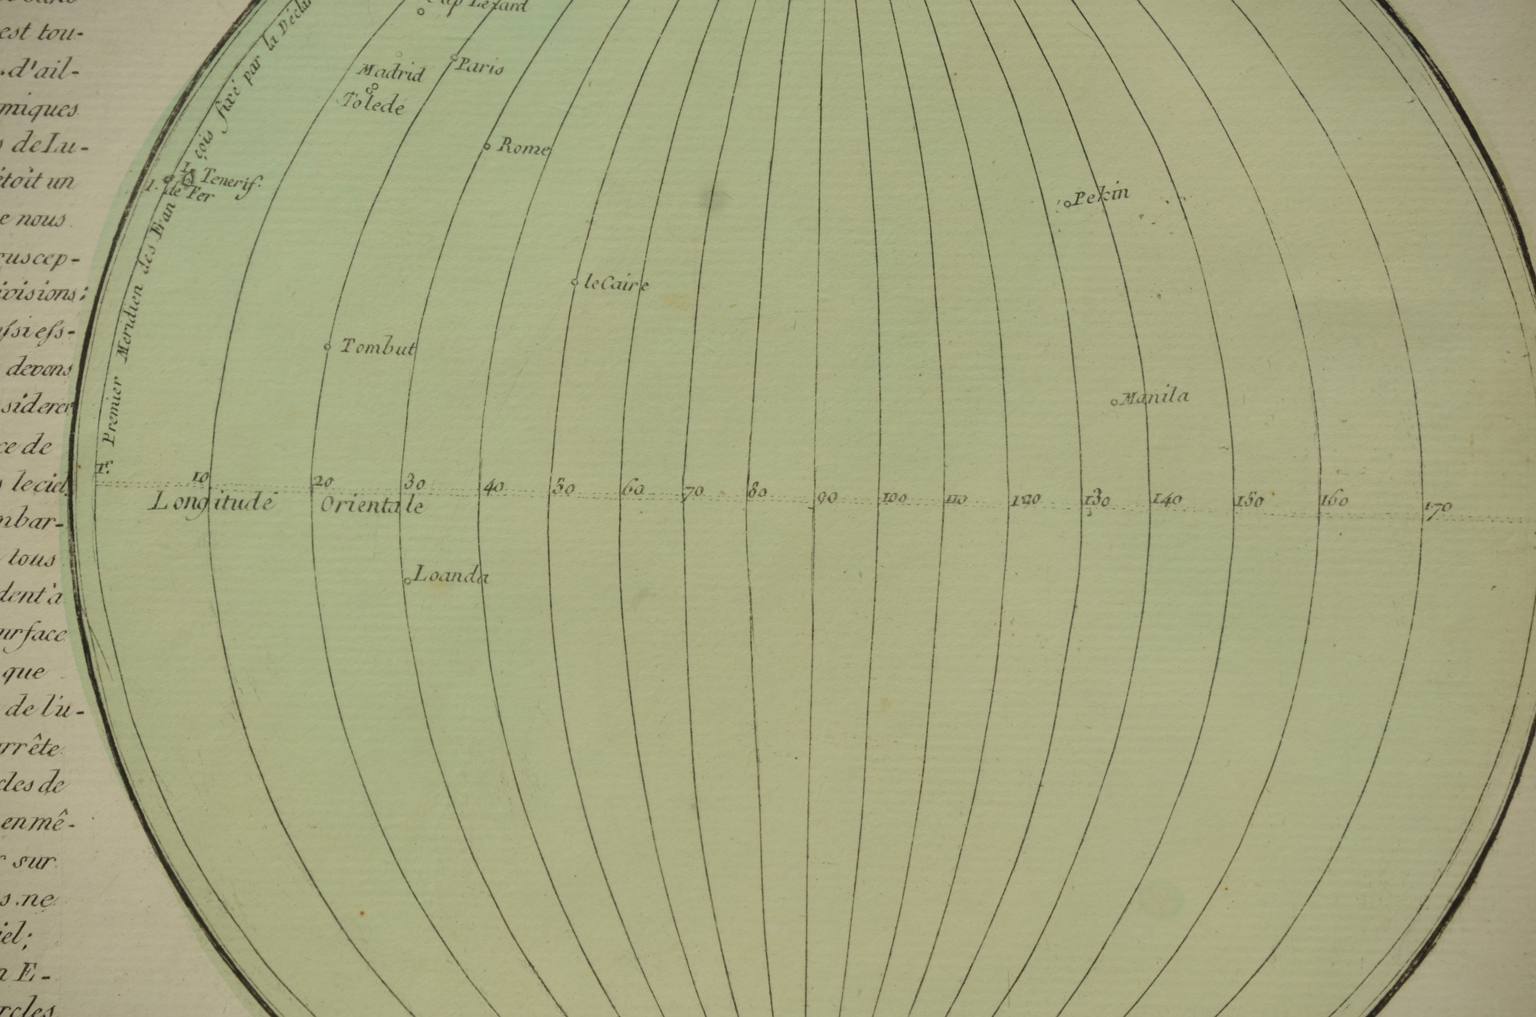 est tou-
d'ail-
miques
de Lu-
étoit un
e nous
suscep-
ivisions;
ssi ess-
devons
siderer
ce de
le ciel
mbar-
tous
dent à
surface
que
de l'u-
arrête
cles de
en mê-
sur
s. ne
iel;
n E-
rcles
Cap Lezard
Paris
Madrid
Tolede
Rome
I. de Fer
Tenerif.
Pekin
le Caire
Tombut
Manila
1er. Premier Meridien des Fran çois fixé par la Déclar
10 20 30 40 50 60 70 80 90 100 110 120 130 140 150 160 170
Longitude Orientale
Loanda